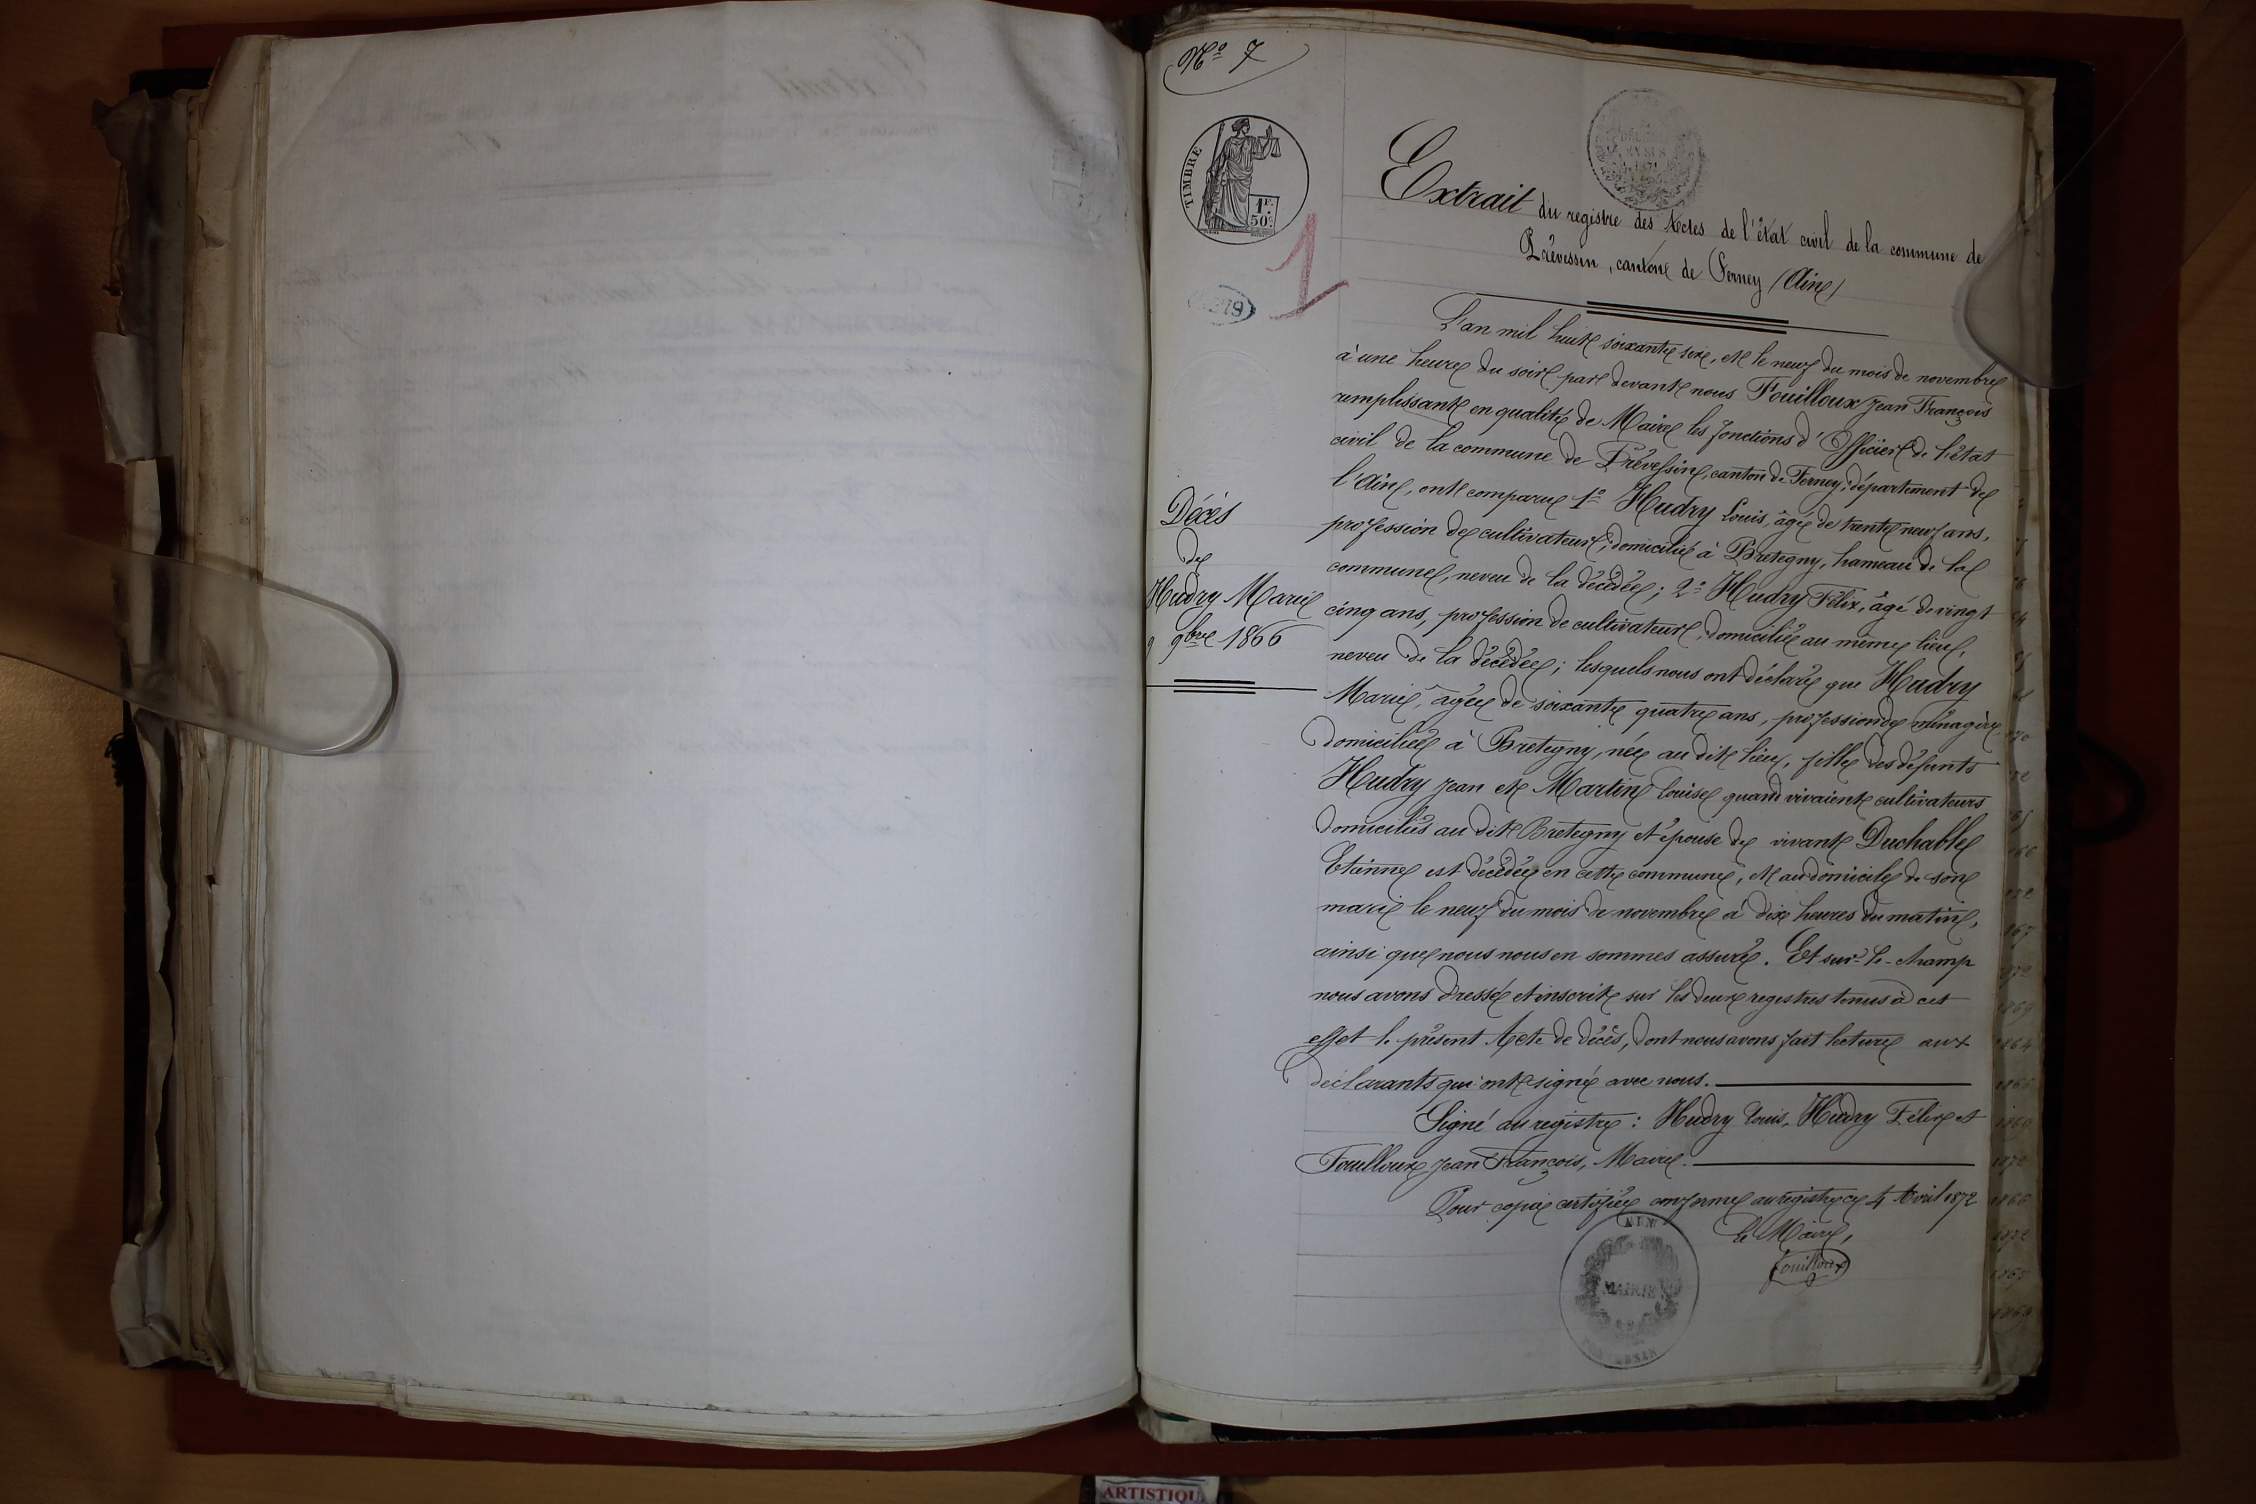 No 7
TIMBRE
1F.
50c.
1
Extrait du registre des Actes de l'état civil de la commune de
Prévessin, canton de Ferney (Ain)
L'an mil huit soixante six, et le neuf du mois de novembre
à une heure du soir, par devant nous Fouilloux Jean François
remplissant en qualité de Maire les fonctions d'Officier de l'état
civil de la commune de Prévessin, canton de Ferney, département de
l'Ain, ont comparu 1o Hudry Louis, âgé de trente neuf ans,
profession de cultivateur, domicilié à Bretegny, hameau de la
commune, neveu de la décédée; 2o Hudry Félix, âgé de vingt
cinq ans, profession de cultivateur, domicilié au même lieu,
neveu de la décédée; lesquels nous ont déclaré que Hudry
Marie, âgée de soixante quatre ans, profession de ménagère
domiciliée à Bretegny, née au dit lieu, fille des défunts
Hudry Jean et Martin Louise quand vivaient cultivateurs
domiciliés au dit Bretegny et épouse de vivant Duchable
Etienne est décédée en cette commune, et au domicile de son
mari le neuf du mois de novembre à dix heures du matin,
ainsi que nous nous en sommes assuré. Et sur-le-champ
nous avons dressé et inscrit sur les deux registres tenus à cet
effet le présent Acte de décès, dont nous avons fait lecture aux
déclarants qui ont signé avec nous.
Signé au registre : Hudry Louis, Hudry Félix et
Fouilloux Jean François, Maire.
Pour copie certifiée conforme au registre ce 4 Avril 1872
le Maire,
Fouilloux
Décès
de
Hudry Marie
9 9bre 1866
AIN
MAIRIE
ARTISTIQU